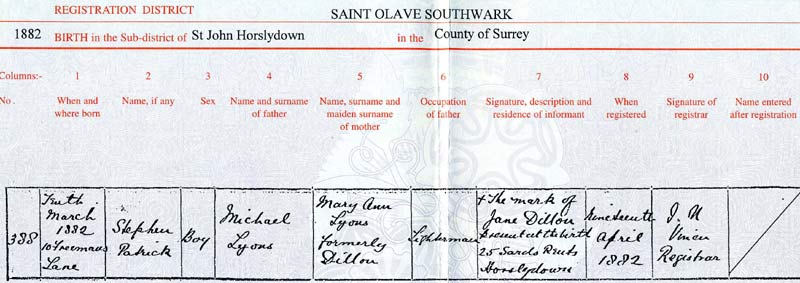 REGISTRATION DISTRICT SAINT OLAVE SOUTHWARK
1882 BIRTH in the Sub-district of St John Horslydown in the County of Surrey
Columns:- 1 2 3 4 5 6 7 8 9 10
No. When and where born Name, if any Sex Name and surname of father Name, surname and maiden surname of mother Occupation of father Signature, description and residence of informant When registered Signature of registrar Name entered after registration
338
Tenth
March
1882
10 Freemans
Lane
Stephen
Patrick
Boy
Michael
Lyons
Mary Ann
Lyons
formerly
Dillon
Lighterman
+ The mark of
Jane Dillon
Present at the birth
25 Sards Rents
Horslydown
Nineteenth
April
1882
Registrar